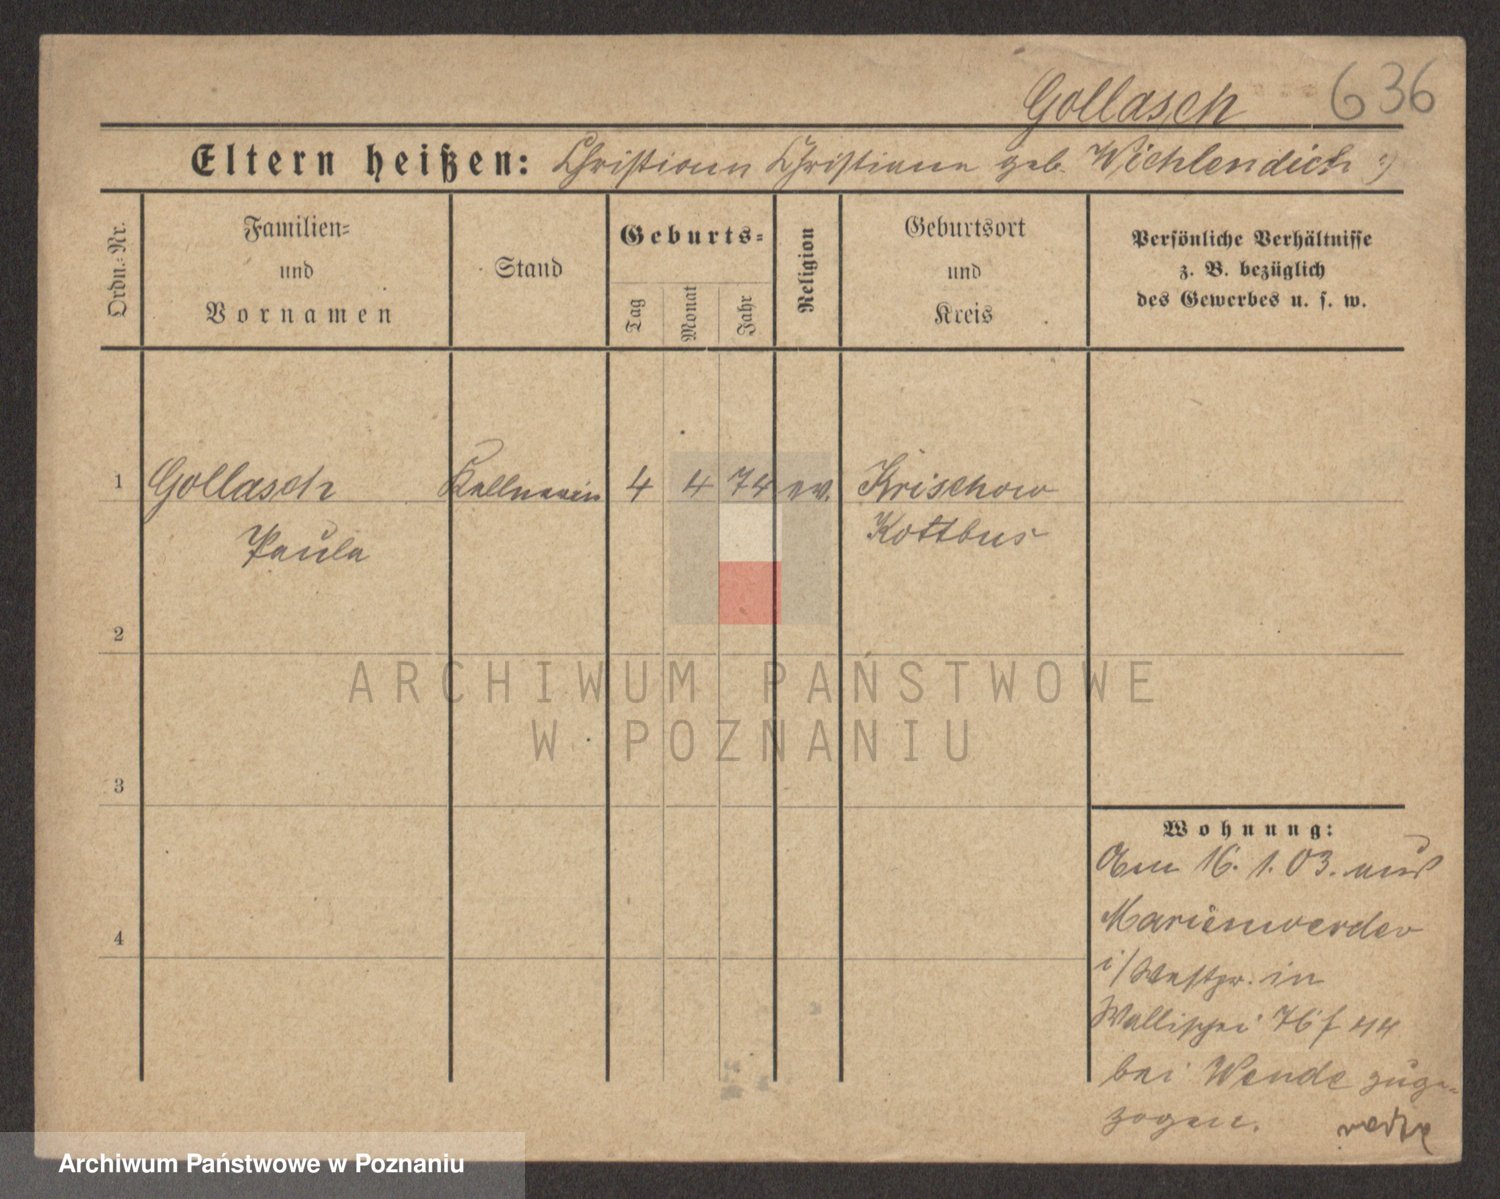 Gollasch 636
Eltern heißen: Christian Christiane geb. Wichlendick :)
Ordn.-Nr.
Familien-
und
Vornamen
Stand
Geburts-
Tag
Monat
Jahr
Religion
Geburtsort
und
Kreis
Persönliche Verhältnisse
z. B. bezüglich
des Gewerbes u. s. w.
1 Gollasch Kellnerin 4 4 74 ev. Krischow
Paula Kottbus
2
3
4
ARCHIWUM PAŃSTWOWE
W POZNANIU
Wohnung:
Am 16. 1. 03. aus
Marienwerder
i/Westpr. in
Wallischei 76
bei Wende zuge-
zogen.
Archiwum Państwowe w Poznaniu